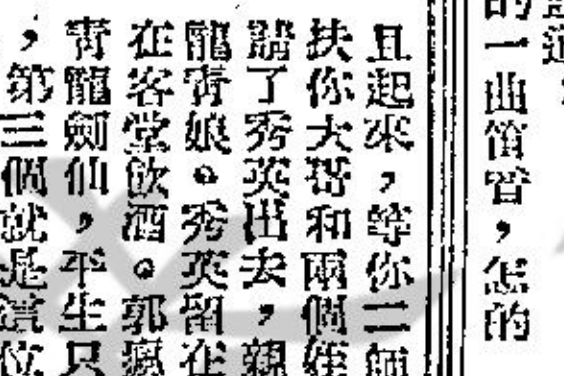 的一曲笛音，怎的
且起來，等你二師
扶你大哥和兩個姪
請了秀英出去，親
龍青娘。秀英留在
在客堂飲酒。郭瘋
青龍劍仙，平生只
，第三個就是這位